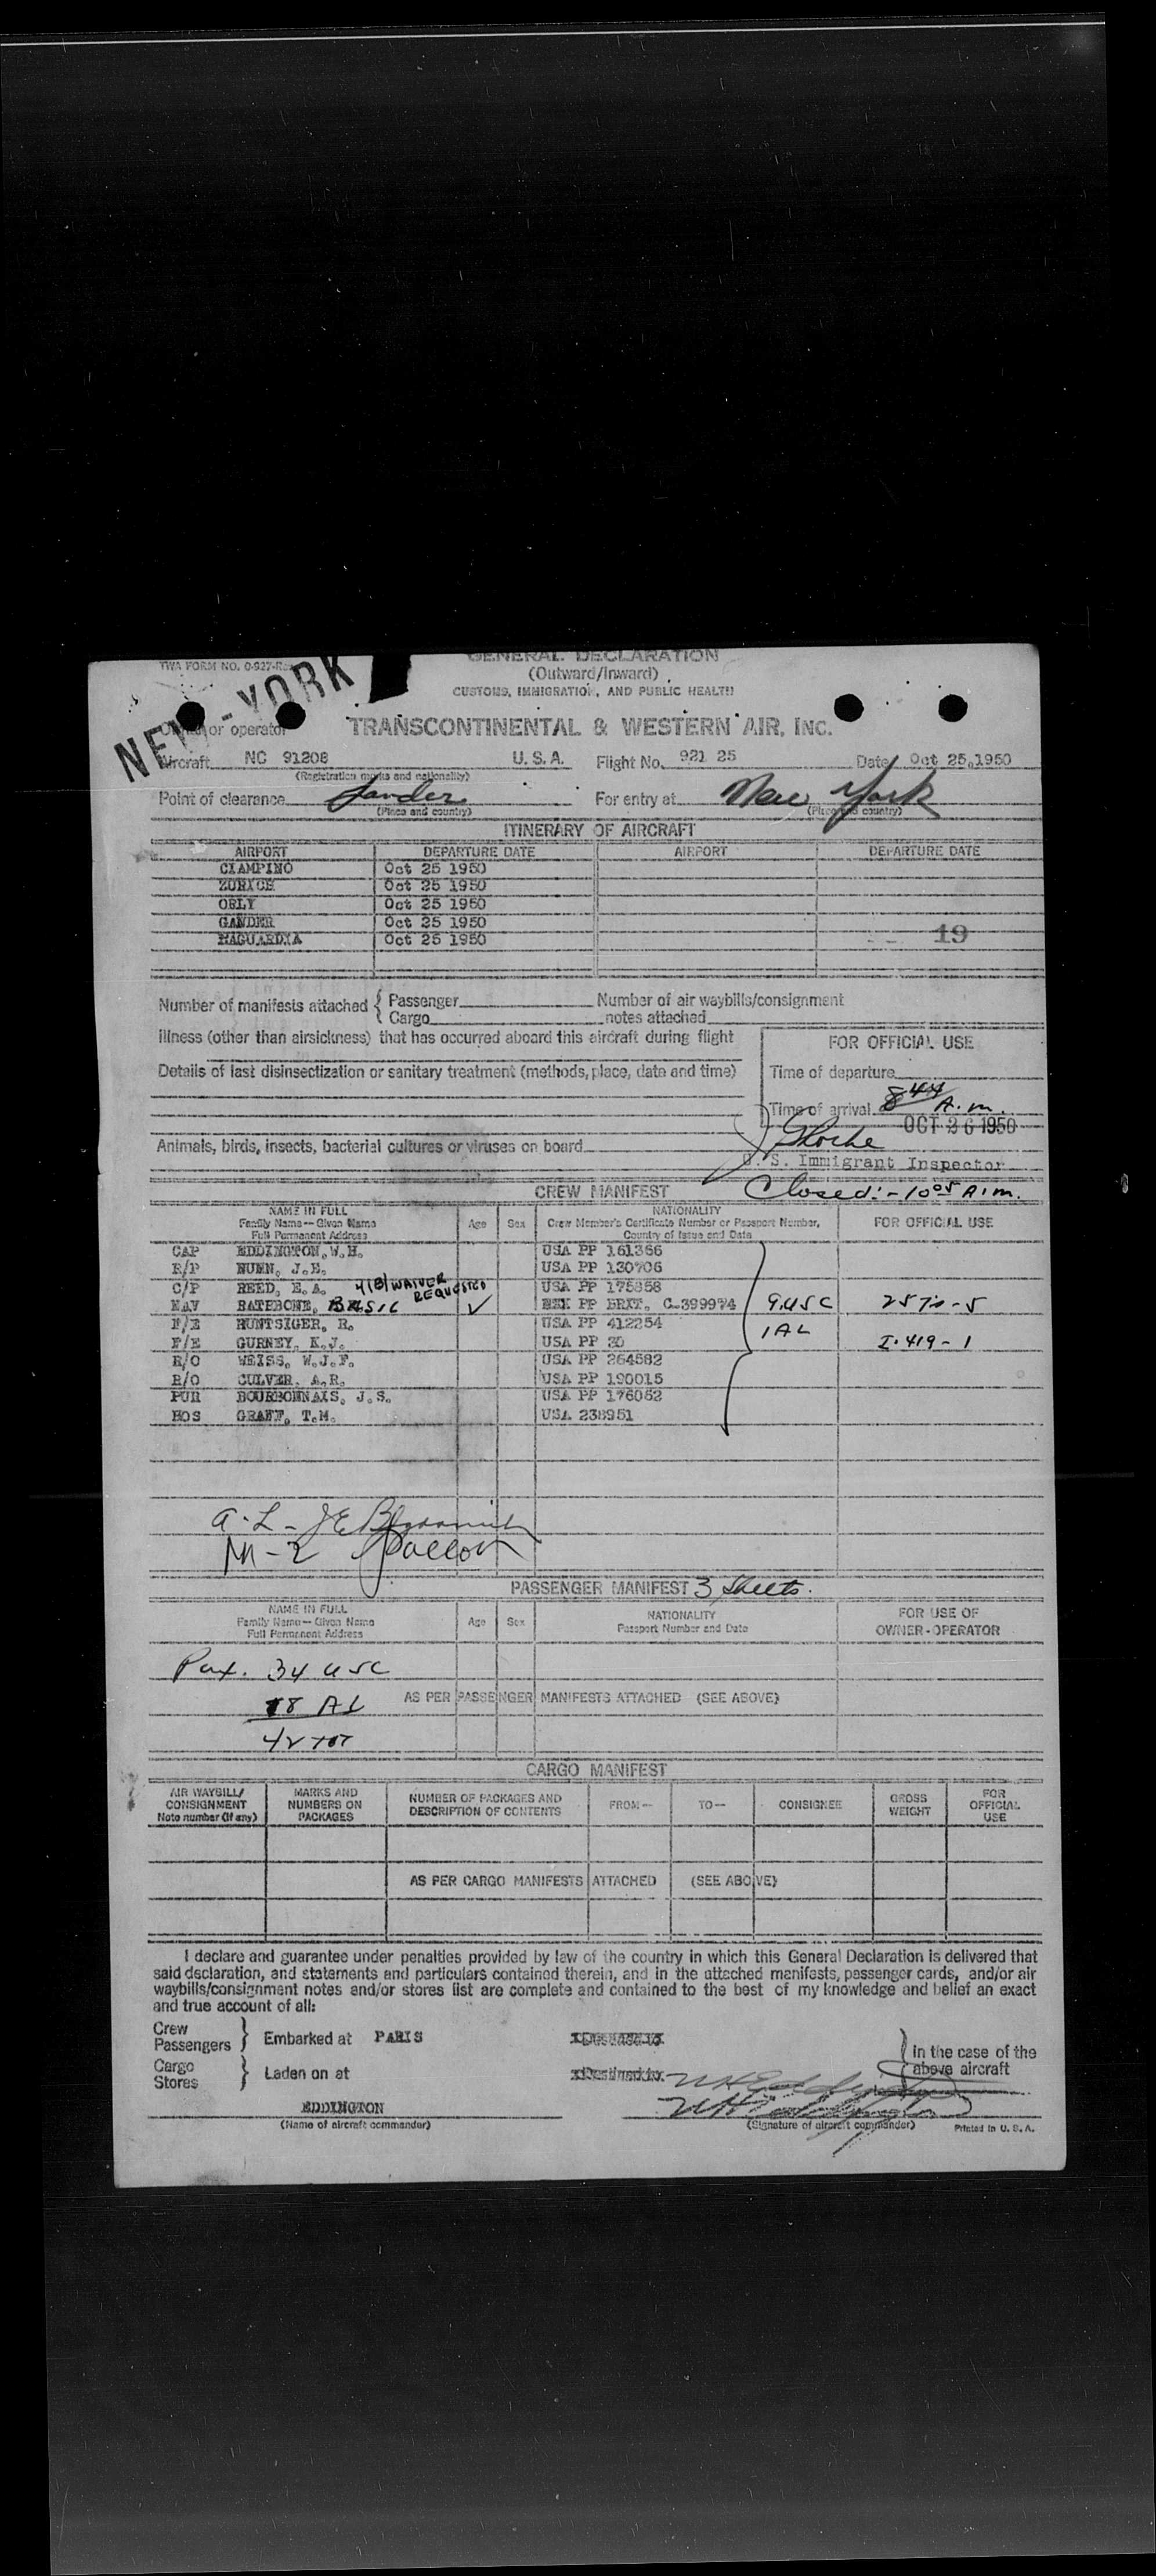 TWA FORM NO. 0-927-R
GENERAL DECLARATION
(Outward/Inward)
CUSTOMS, IMMIGRATION, AND PUBLIC HEALTH
NEW-YORK
or operator TRANSCONTINENTAL & WESTERN AIR, INC.
Aircraft NC 91208 U. S. A. Flight No. 921 25 Date Oct 25,1950
(Registration marks and nationality)
Point of clearance Gander For entry at New York
(Place and country) (Place and country)
ITINERARY OF AIRCRAFT
AIRPORT DEPARTURE DATE AIRPORT DEPARTURE DATE
CIAMPINO Oct 25 1950
ZURICH Oct 25 1950
ORLY Oct 25 1950
GANDER Oct 25 1950
Oct 25 1950
19
Number of manifests attached { Passenger Number of air waybills/consignment
Cargo notes attached
Illness (other than airsickness) that has occurred aboard this aircraft during flight
FOR OFFICIAL USE
Details of last disinsectization or sanitary treatment (methods, place, date and time)
Time of departure
Time of arrival 8 44 A.m.
OCT 26 1950
Animals, birds, insects, bacterial cultures or viruses on board
U. S. Immigrant Inspector
CREW MANIFEST Closed:- 10 05 A.m.
NAME IN FULL
Family Name—Given Name
Full Permanent Address
Age Sex
NATIONALITY
Crew Member's Certificate Number or Passport Number,
Country of Issue and Date
FOR OFFICIAL USE
CAP EDDINGTON, W.H. USA PP 161366
R/P NUNN, J.E. USA PP 130706
C/P REED, E.A. 4(B) WAIVER REQUESTED USA PP 175858
NAV RATEBONE, BASIC ✓ PP BRIT. C-399974 9 USC
F/E HUNTSIGER, R. USA PP 412254
F/E GURNEY, K.J. USA PP 20 1 AL I-419-1
R/O WEISS, W.J.F. USA PP 264582
R/O CULVER, A.R. USA PP 190015
PUR BOURBONNAIS, J.S. USA PP 176052
HOS GRAFF, T.M. USA 238951
A.L-
M-2
PASSENGER MANIFEST 3 Sheets.
NAME IN FULL
Family Name—Given Name
Full Permanent Address
Age Sex
NATIONALITY
Passport Number and Date
FOR USE OF
OWNER-OPERATOR
Pax. 34 USC
8 AL AS PER PASSENGER MANIFESTS ATTACHED (SEE ABOVE)
42 TOT
CARGO MANIFEST
AIR WAYBILL/
CONSIGNMENT
Note number (if any)
MARKS AND
NUMBERS ON
PACKAGES
NUMBER OF PACKAGES AND
DESCRIPTION OF CONTENTS
FROM—
TO—
CONSIGNEE
GROSS
WEIGHT
FOR
OFFICIAL
USE
AS PER CARGO MANIFESTS ATTACHED (SEE ABOVE)
I declare and guarantee under penalties provided by law of the country in which this General Declaration is delivered that
said declaration, and statements and particulars contained therein, and in the attached manifests, passenger cards, and/or air
waybills/consignment notes and/or stores list are complete and contained to the best of my knowledge and belief an exact
and true account of all:
Crew
Passengers } Embarked at PARIS
Cargo
Stores } Laden on at
In the case of the
above aircraft
EDDINGTON WH Eddington
(Name of aircraft commander) (Signature of aircraft commander) Printed in U. S. A.